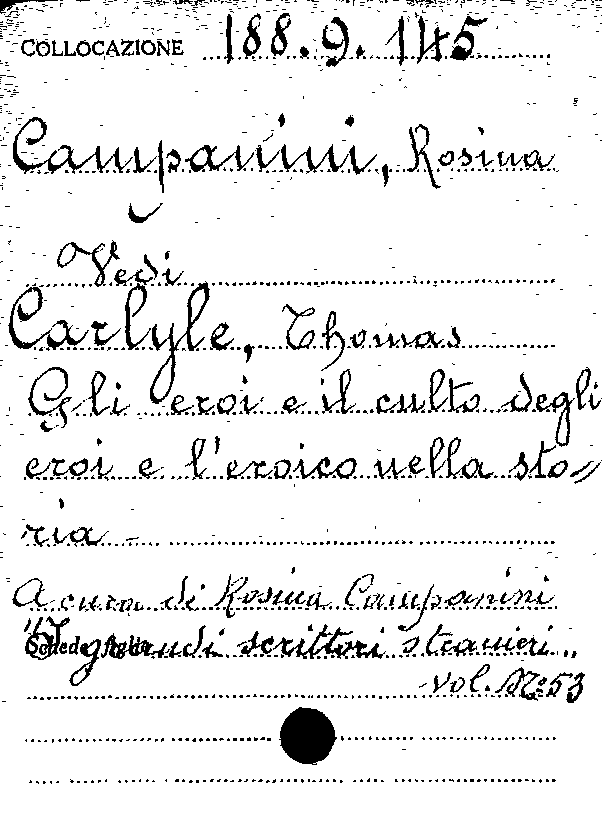 COLLOCAZIONE 188.9.145
Campanini, Rosina
Vedi
Carlyle, Thomas
Gli eroi e il culto degli
eroi e l'eroico nella sto=
ria -
A cura di Rosina Campanini
"I grandi scrittori stranieri"
vol. Nº 53